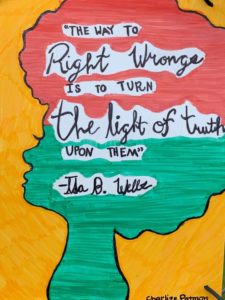 "THE WAY TO
Right Wrongs
IS TO TURN
the light of truth
UPON THEM"
-Ida B. Wells
Charlize Patmon